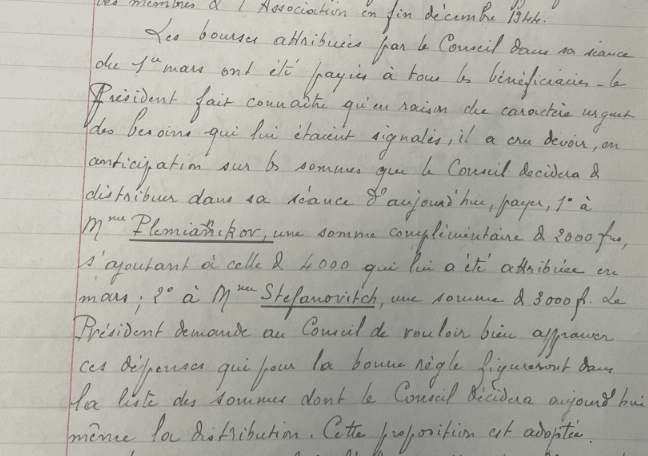 les membres de l'Association en fin décembre 1944.
Les bourses attribuées par le Conseil dans sa séance
du 1er mars ont été payées à tous les bénéficiaires - le
Président fait connaître qu'en raison du caractère urgent
des besoins qui lui étaient signalés, il a cru devoir, en
anticipation sur les sommes que le Conseil decidera de
distribuer dans sa séance d'aujourd'hui, payer, 1° à
Mme Plemiannikov, une somme complémentaire de 2000 frs,
s'ajoutant à celle de 4000 qui lui a été attribuée en
mars ; 2° à Mme Stefanovitch, une somme de 3000 f. Le
Président demande au Conseil de vouloir bien approuver
ces dépenses qui pour la bonne règle figureront dans
la liste des sommes dont le Conseil décidera aujourd'hui
même la distribution. Cette proposition est adoptée.